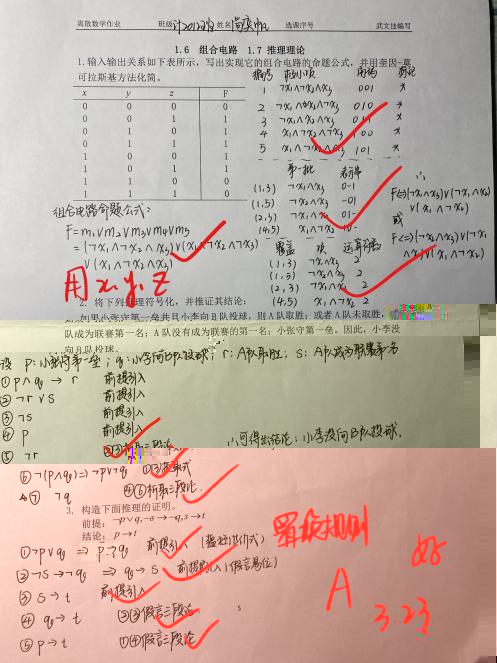 离散数学作业 班级 计2012班 姓名 选课序号 武文佳编写
1.6 组合电路 1.7 推理理论
1.输入输出关系如下表所示，写出实现它的组合电路的命题公式，并用奎因-莫
可拉斯基方法化简。
x y z F
0 0 0 0
0 0 1 1
0 1 0 1
0 1 1 1
1 0 0 1
1 0 1 1
1 1 0 0
1 1 1 0
编号 极小项 角码 标记
1 ¬x₁∧¬x₂∧x₃ 001 *
2 ¬x₁∧x₂∧¬x₃ 010 *
3 ¬x₁∧x₂∧x₃ 011 *
4 x₁∧¬x₂∧¬x₃ 100 *
5 x₁∧¬x₂∧x₃ 101 *
第一批 表示串
(1,3) ¬x₁∧x₃ 0-1
(1,5) ¬x₂∧x₃ -01
(2,3) ¬x₁∧x₂ 01-
(4,5) x₁∧¬x₂ 10-
覆盖 项 运算符数
(1,3) ¬x₁∧x₃ 2
(1,5) ¬x₂∧x₃ 2
(2,3) ¬x₁∧x₂ 2
(4,5) x₁∧¬x₂ 2
∴
F<=>(¬x₁∧x₃)∨(¬x₁∧x₂)
∨(x₁∧¬x₂)
或
F<=>(¬x₂∧x₃)∨(¬x₁
∧x₂)∨(x₁∧¬x₂)
组合电路命题公式：
F=m₁∨m₂∨m₃∨m₄∨m₅
用 x,y,z
2. 将下列推理符号化，并推证其结论：
如果小张守第一垒并且小李向B队投球，则A队取胜；或者A队未取胜，
队成为联赛第一名；A队没有成为联赛的第一名；小张守第一垒。因此，小李没
向B队投球。
设 p:小张守第一垒；q:小李向B队投球；r:A队取胜；s:A队成为联赛第一名
① p∧q→r 前提引入
② ¬r∨s 前提引入
③ ¬s 前提引入
④ p 前提引入
⑤ ¬r ②③析取三段论
∴可得出结论：小李没向B队投球.
⑥ ¬(p∧q)=>¬p∨¬q ①⑤拒取式
⑦ ¬q ④⑥析取三段论
3. 构造下面推理的证明。
前提：¬p∨q,¬s→¬q,s→t
结论：p→t
① ¬p∨q => p→q 前提引入(蕴涵等价式)
② ¬s→¬q => q→s 前提引入(假言易位)
③ s→t 前提引入
④ q→t ②③假言三段论
⑤ p→t ①④假言三段论
置换规则
A
好
3.23